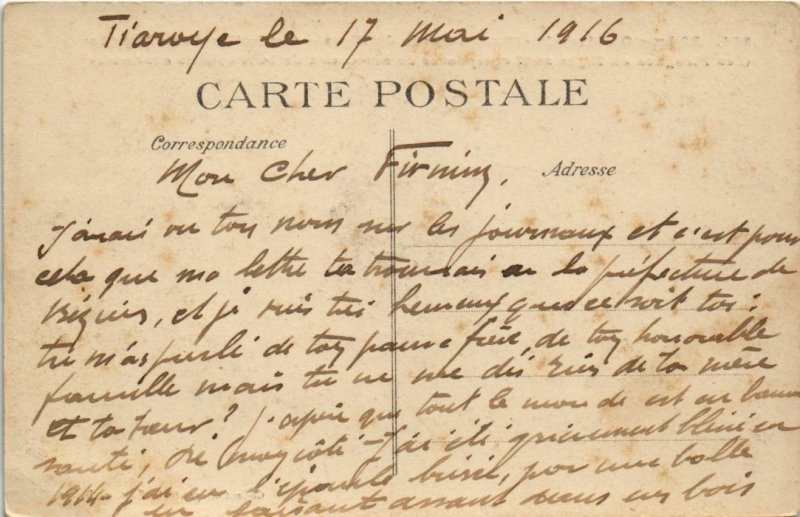 Tiaroye le 17 Mai 1916
CARTE POSTALE
Correspondance
Adresse
Mon cher Firminy,
J'avais vu ton nom sur les journaux et c'est pour
cela que ma lettre ta trouvais a la préfecture de
Béziers, et je suis très heureux que ce soit toi :
tu m'as parlé de ton pauvre frère, de ton honorable
famille mais tu ne me dis rien de ta mère
et ta sœur ? J'espère que tout le monde est en bonne
santé, de mon côté J'ai été grièvement blessé en
1914 j'ai eu l'épaule brisée, par une balle
en faisant assaut dans un bois